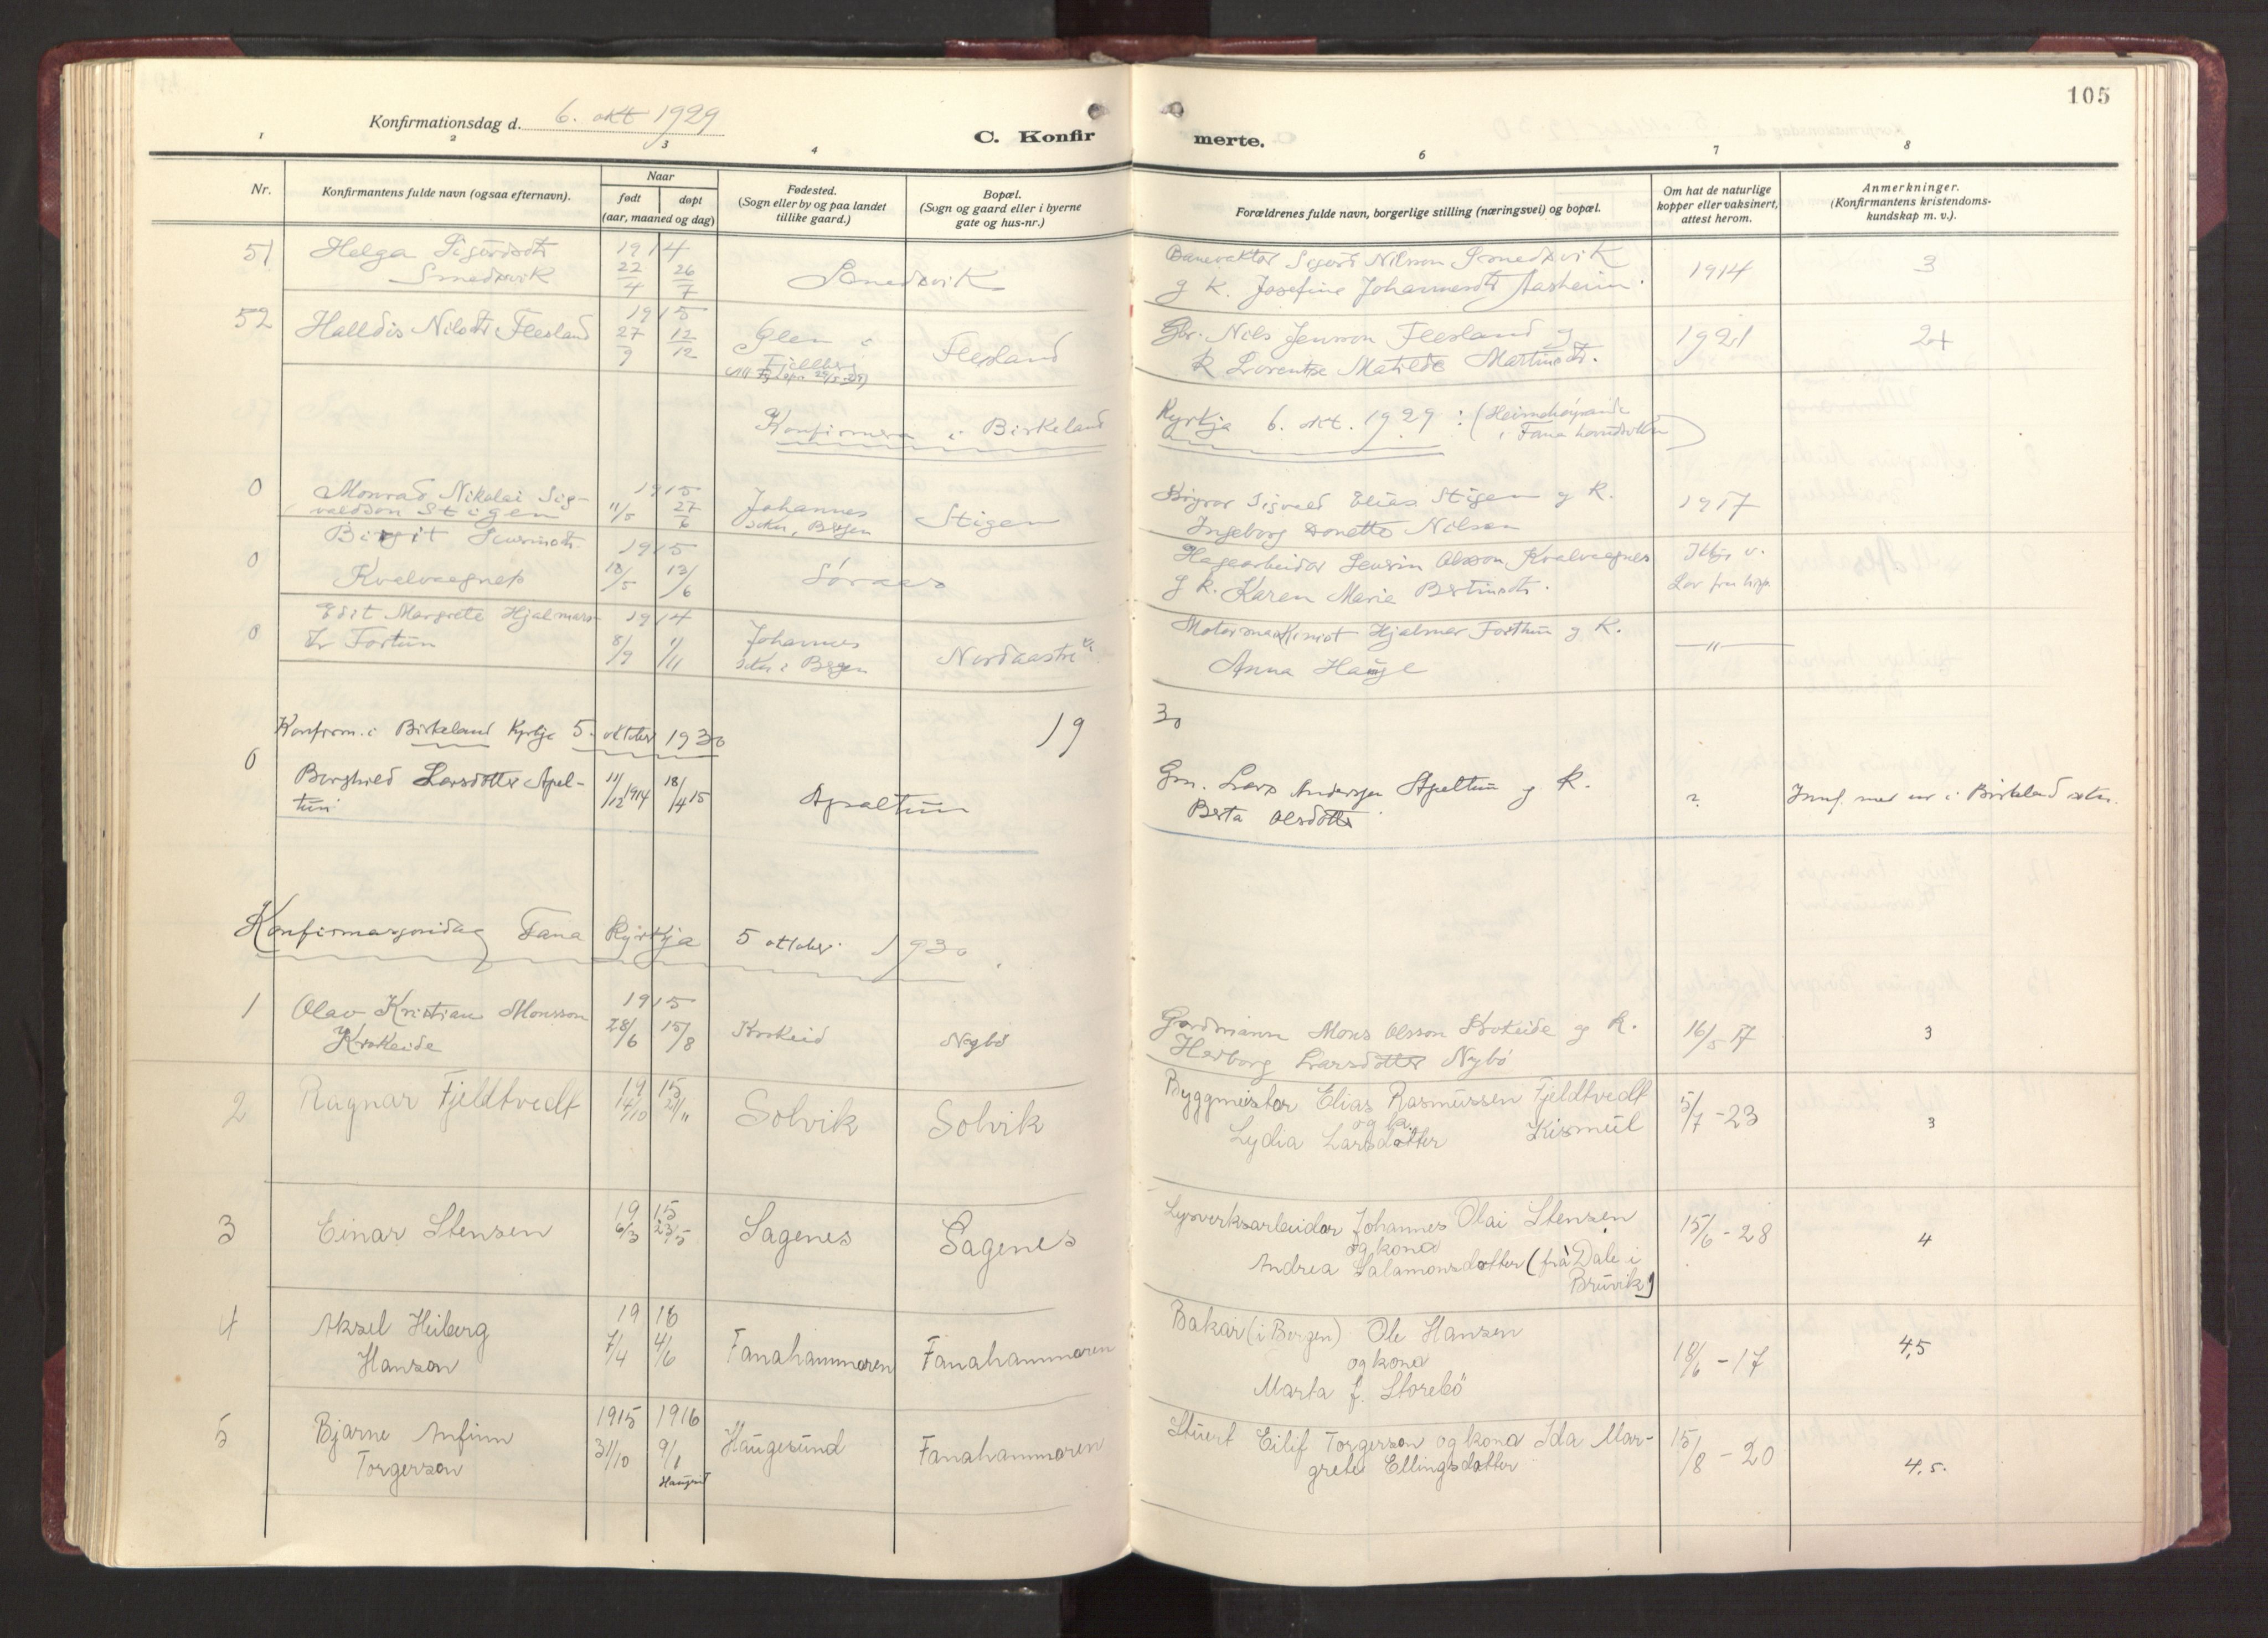 105
Konfirmationsdag d. 6. okt 1929
C. Konfir
merte.
1 2 3 4 6 7 8
Nr.
Konfirmantens fulde navn (ogsaa efternavn).
Naar
født døpt
(aar, maaned og dag)
Fødested.
(Sogn eller by og paa landet
tillike gaard.)
Bopæl.
(Sogn og gaard eller i byerne
gate og hus-nr.)
Forældrenes fulde navn, borgerlige stilling (næringsvei) og bopæl.
Om hat de naturlige
kopper eller vaksinert,
attest herom.
Anmerkninger.
(Konfirmantens kristendoms-
kundskap m. v.).
51 Helga Sigurdsdtr 1914 Banevaktar Sigurd Nilsson Smedsvik
Smedsvik 22/4 26/7 Smedsvik g k. Josefine Johannesdtr Aasheim. 1914 3
52 Halldis Nilsdtr Flesland 1915 27/9 12/12 Ølen i Flesland Gbr. Nils Jensson Flesland g 1921 2+
Fjellberg k Lorentse Matilde Martinsdtr.
Konfirmera i Birkeland Kyrkja 6. okt. 1929: (Heimehøyrande
i Fana hovudsokn)
0 Monrad Nikolai Sig- 1915 Johannes Sigvald Elias Stigen g k. 1917
valdson Stigen 11/5 27/6 sokn, Bergen Stigen Ingeborg Donette Nilsen
0 Birgit Severinsdtr. 1915 Hagearbeidar Severin Olsson Kvalvaagnes
Kvalvaagnes 13/5 13/6 Søraas g k. Karen Marie Bertinsdtr.
0 Edit Margrete Hjalmars- 1914 Johannes Motormaskinist Hjalmar Forthun g k. —"—
dtr Fortun 8/9 1/11 sokn i Bergen Nordaastræ Anna Hauge
Konfirm. i Birkeland Kyrkje 5. oktober 1930 1930
0 Borghild Larsdotter Apel- 11/12 1914 18/4 15 Apaltun Gm. Lars Andersen Apeltun g k. ?
tun Berta Olsdotter
Konfirmasjonsdag Fana Kyrkja 5 oktober 1930.
1 Olav Kristian Monsson 1915 Gardmann Mons Olsson Krokeide g k.
Krokeide 28/6 15/8 Krokeid Nybø Herborg Larsdotter Nybö 16/5 17 3
2 Ragnar Fjeldtvedt 1915 14/10 21/11 Solvik Solvik Byggmeistar Elias Rasmussen Fjeldtvedt 5/7 - 23 3
og k.
Lydia Larsdotter Kismul
3 Einar Stensen 1915 6/3 23/5 Sagenes Sagenes Lysverksarbeidar Johannes Olai Stensen 15/6 - 28 4
og kona
Andrea Salamonsdotter (frå Dale i
Bruvik)
4 Aksel Heiberg 1916 Bakar (i Bergen) Ole Hansen
Hanson 7/4 4/6 Fanahammaren Fanahammaren og kona 18/6 - 17 4,5
Marta f. Storebö
5 Bjarne Anfinn 1915 1916 Stuert Eilif Torgerson og kona Ida Mar-
Torgerson 31/10 9/1 Haugesund Fanahammaren grete Ellingsdotter 15/8 - 20 4,5.